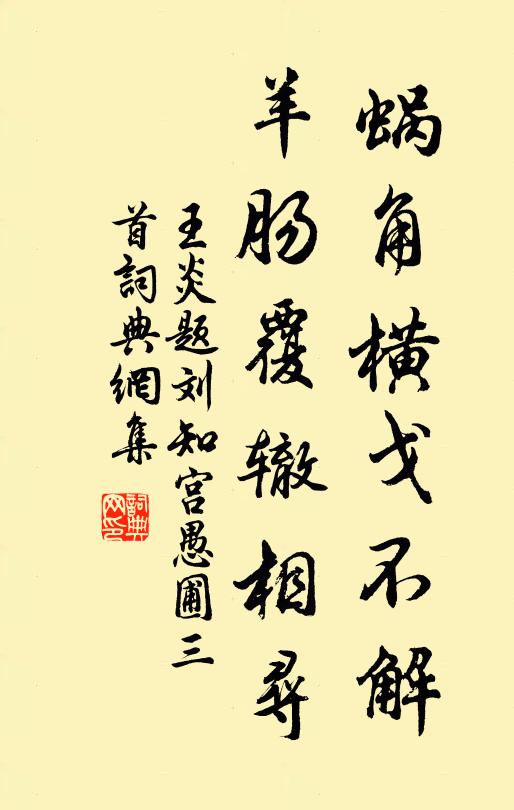 蜗角横戈不解
羊肠覆辙相寻
王炎题刘知宫愚圃三
首詞典網集
詞典
网印